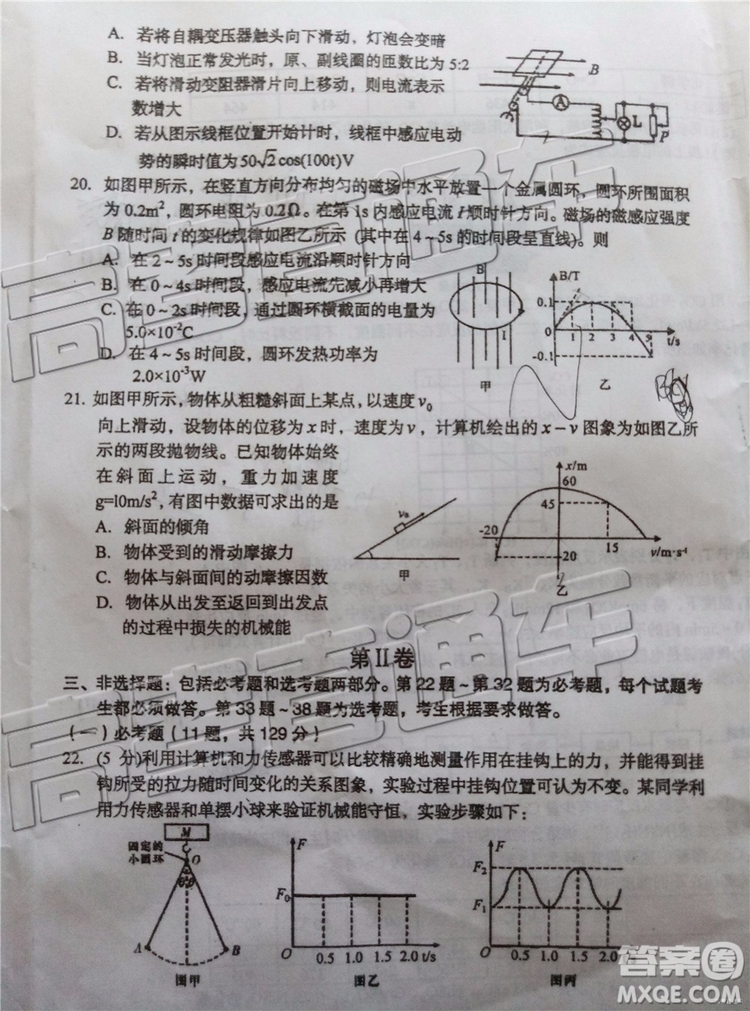 A. 若将自耦变压器触头向下滑动，灯泡会变暗
B. 当灯泡正常发光时，原、副线圈的匝数比为5:2
C. 若将滑动变阻器滑片向上移动，则电流表示
数增大
D. 若从图示线框位置开始计时，线框中感应电动
势的瞬时值为50√2cos(100t)V
B
A
L
P
20. 如图甲所示，在竖直方向分布均匀的磁场中水平放置一个金属圆环，圆环所围面积
为0.2m²，圆环电阻为0.2Ω。在第1s内感应电流I顺时针方向。磁场的磁感应强度
B随时间t的变化规律如图乙所示（其中在4～5s的时间段呈直线）。则
A. 在2～5s时间段感应电流沿顺时针方向
B. 在0～4s时间段，感应电流先减小再增大
C. 在0～2s时间段，通过圆环横截面的电量为
5.0×10⁻²C
D. 在4～5s时间段，圆环发热功率为
2.0×10⁻³W
B
I
甲
B/T
0.1
0
-0.1
1 2 3 4 5
t/s
乙
21. 如图甲所示，物体从粗糙斜面上某点，以速度v₀
向上滑动，设物体的位移为x时，速度为v，计算机绘出的x－v图象为如图乙所
示的两段抛物线。已知物体始终
在斜面上运动，重力加速度
g=l0m/s²，有图中数据可求出的是
A. 斜面的倾角
B. 物体受到的滑动摩擦力
C. 物体与斜面间的动摩擦因数
D. 物体从出发至返回到出发点
的过程中损失的机械能
v₀
甲
x/m
60
45
-20
20
15
v/m·s⁻¹
乙
第Ⅱ卷
三、非选择题：包括必考题和选考题两部分。第22题～第32题为必考题，每个试题考
生都必须做答。第33题～38题为选考题，考生根据要求做答。
（一）必考题（11题，共129分）
22. (5 分)利用计算机和力传感器可以比较精确地测量作用在挂钩上的力，并能得到挂
钩所受的拉力随时间变化的关系图象，实验过程中挂钩位置可认为不变。某同学利
用力传感器和单摆小球来验证机械能守恒，实验步骤如下：
固定的
小圆环
M
O
θ θ
A
B
图甲
F
F₀
O
0.5 1.0 1.5 2.0 t/s
图乙
F
F₂
F₁
O
0.5 1.0 1.5 2.0
图丙
高考直通车
高考直通车
答案圈
MXQE.COM